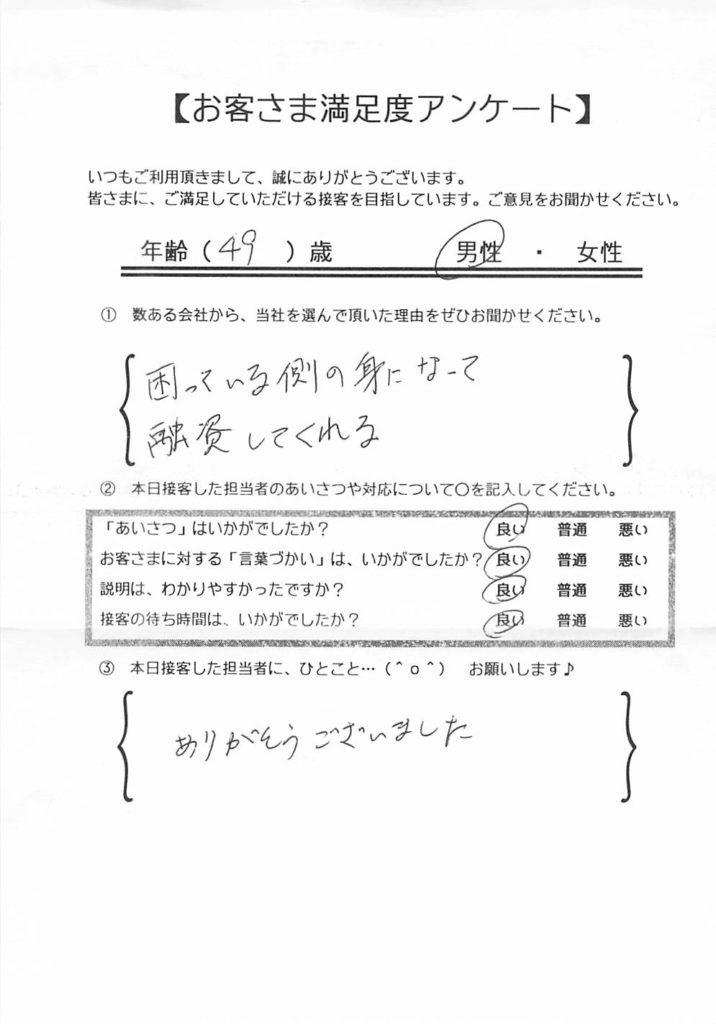 【お客さま満足度アンケート】
いつもご利用頂きまして、誠にありがとうございます。
皆さまに、ご満足していただける接客を目指しています。ご意見をお聞かせください。
年齢（49）歳　男性・女性
① 数ある会社から、当社を選んで頂いた理由をぜひお聞かせください。
困っている側の身になって
融資してくれる
② 本日接客した担当者のあいさつや対応について〇を記入してください。
「あいさつ」はいかがでしたか？　良い　普通　悪い
お客さまに対する「言葉づかい」は、いかがでしたか？　良い　普通　悪い
説明は、わかりやすかったですか？　良い　普通　悪い
接客の待ち時間は、いかがでしたか？　良い　普通　悪い
③ 本日接客した担当者に、ひとこと…（＾ｏ＾）　お願いします♪
ありがとうございました